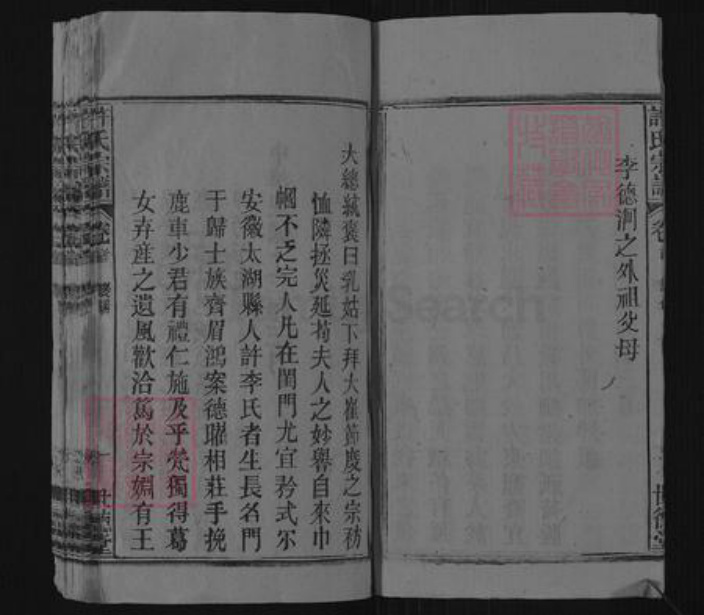 李德洞之外祖父母
許氏宗譜
大總統褒曰乳姑下拜大崔節慶之宗訪
恤隣拯災延荀夫人之妙譽自來巾
幗不乏完人凡在閨門尤宜矜式尔
安徽太湖縣人許李氏者生長名門
于歸士族齊眉鴻案德曜相莊手挽
鹿車少君有禮仁施及乎煢獨得葛
女弃產之遺風歡洽篤於宗婣有王
許氏宗譜
Search